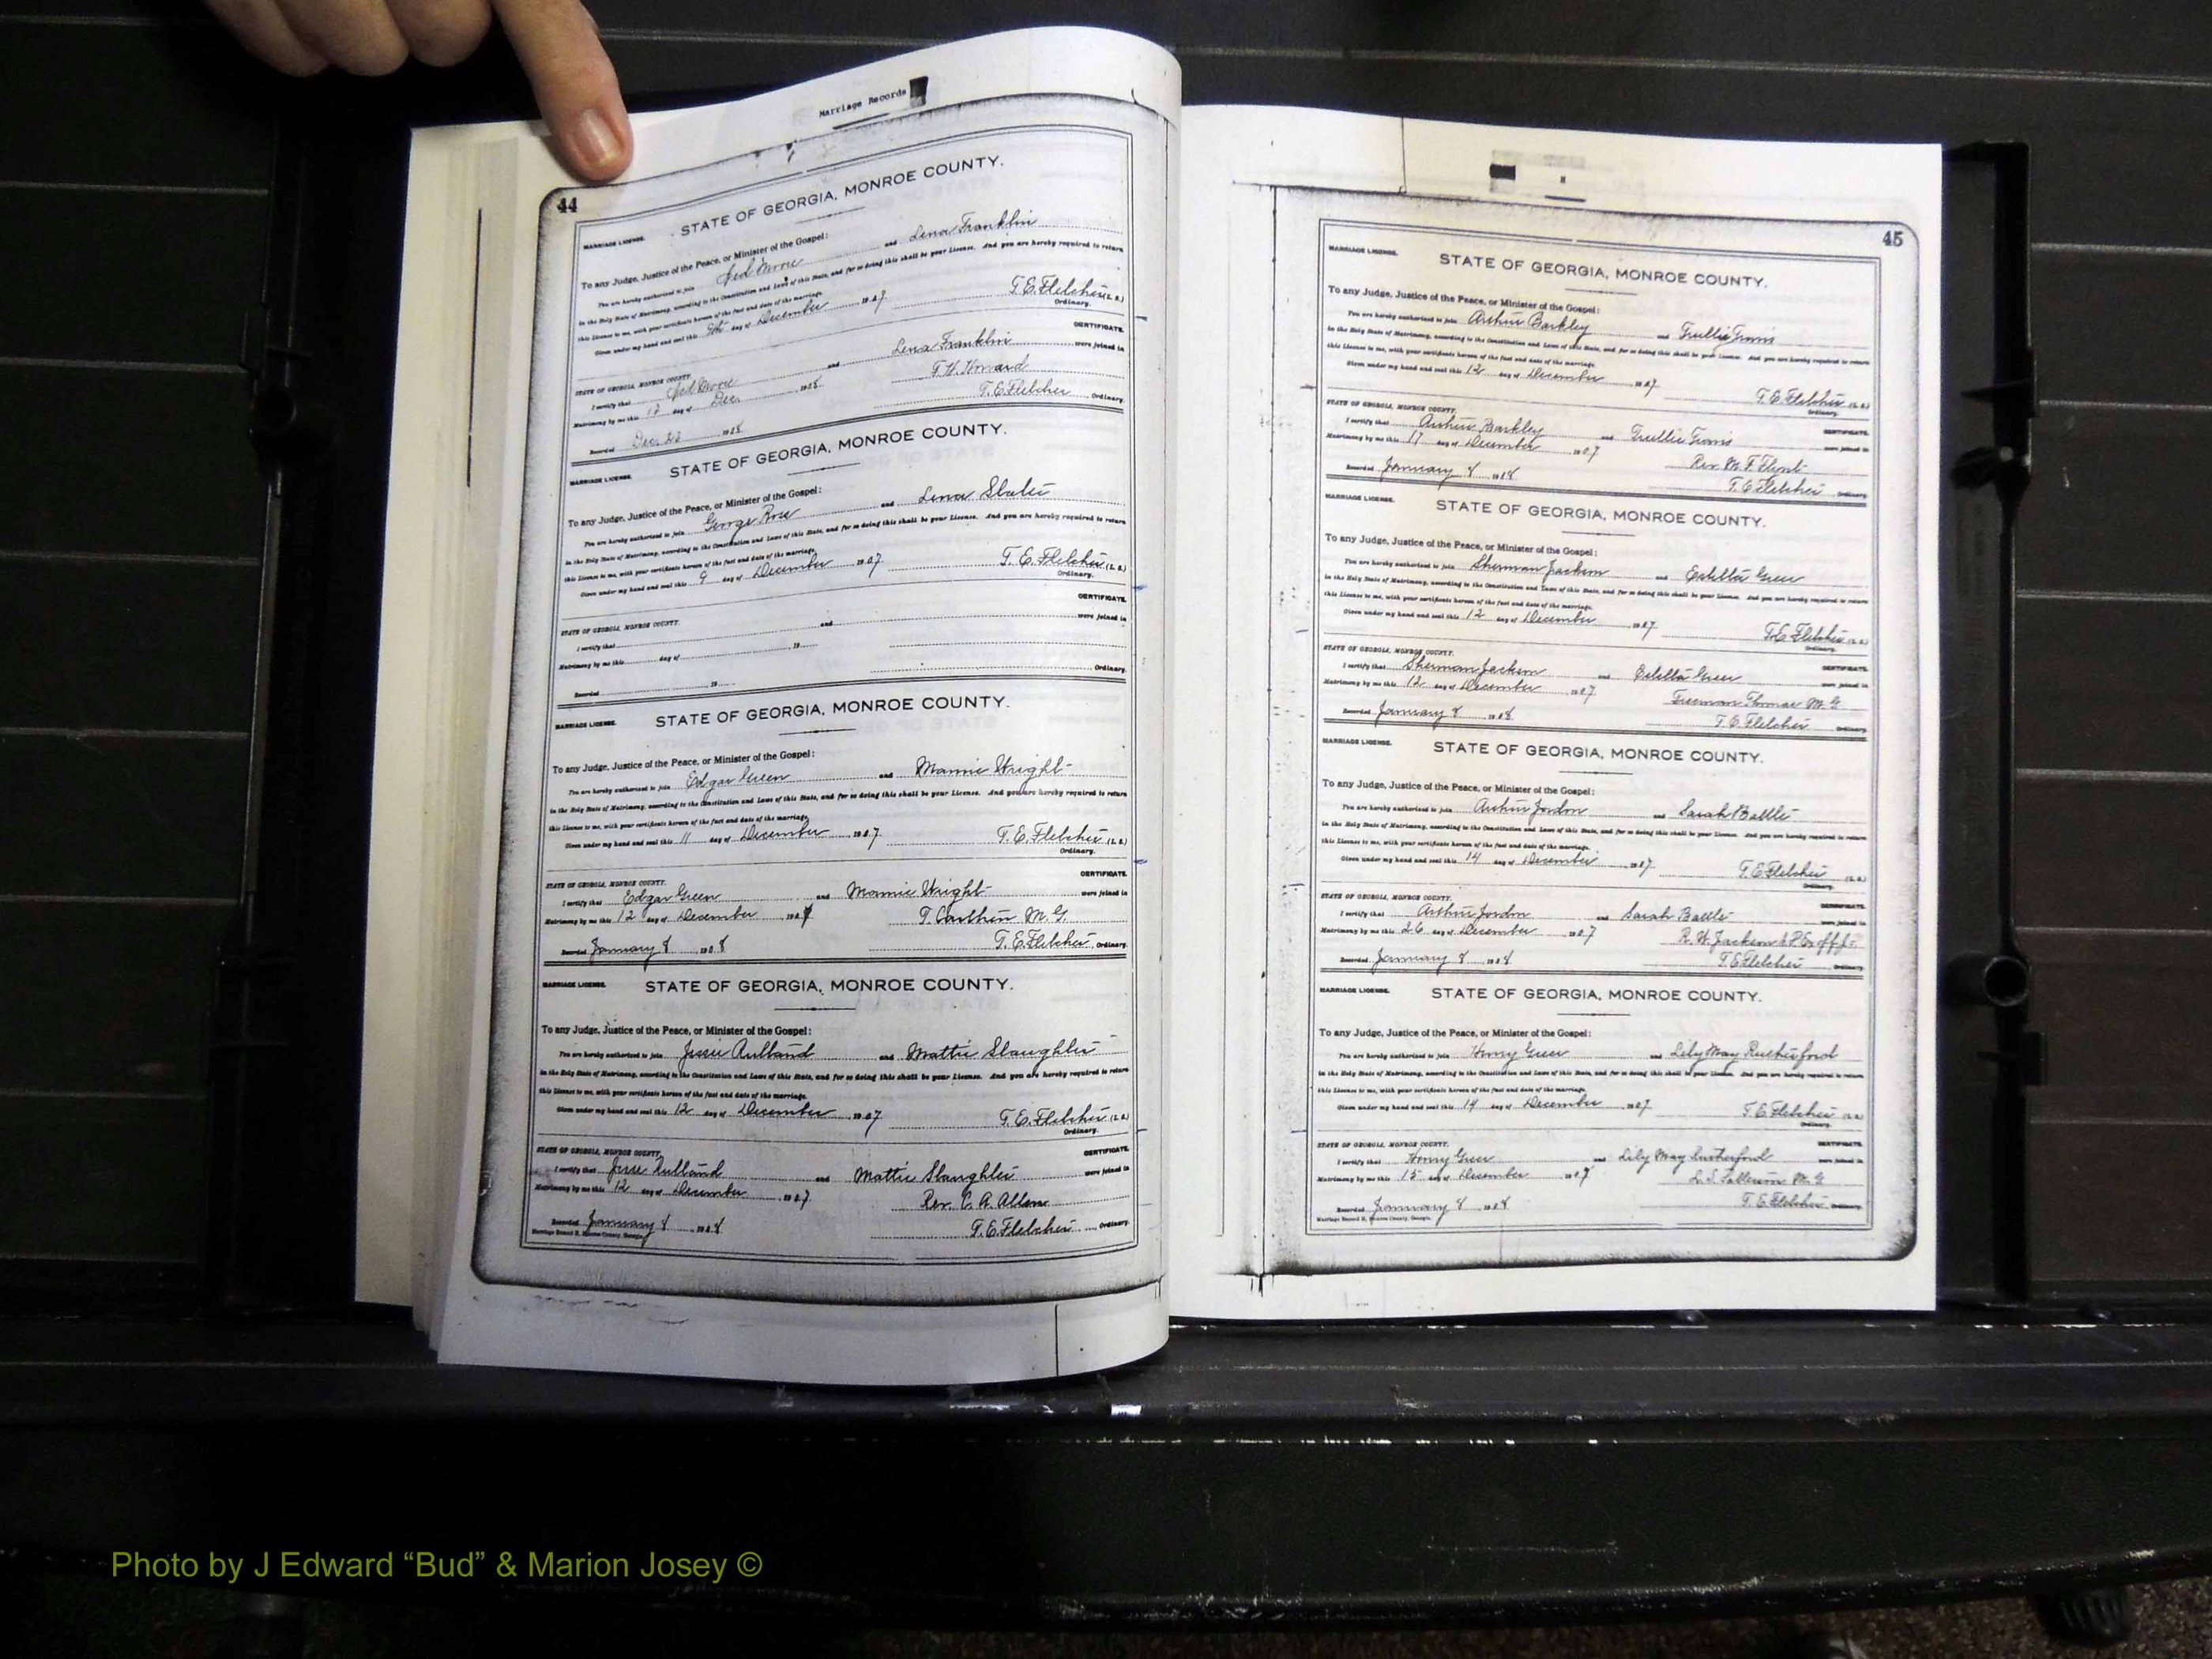 Marriage Records
44
MARRIAGE LICENSE. STATE OF GEORGIA, MONROE COUNTY.
To any Judge, Justice of the Peace, or Minister of the Gospel:
You are hereby authorized to join Moore and Lena Franklin
in the Holy State of Matrimony, according to the Constitution and Laws of this State, and for so doing this shall be your License. And you are hereby required to return
this License to me, with your certificate hereon of the fact and date of the marriage.
Given under my hand and seal this 9th day of December 1907. T. E. Fletcher (L. S.)
Ordinary.
STATE OF GEORGIA, MONROE COUNTY. CERTIFICATE.
I certify that Moore and Lena Franklin were joined in
Matrimony by me this day of Dec. 1908 T. H. Howard
Recorded Dec. 23 1908 T. E. Fletcher Ordinary.
MARRIAGE LICENSE. STATE OF GEORGIA, MONROE COUNTY.
To any Judge, Justice of the Peace, or Minister of the Gospel:
You are hereby authorized to join George and Lena Slater
in the Holy State of Matrimony, according to the Constitution and Laws of this State, and for so doing this shall be your License. And you are hereby required to return
this License to me, with your certificate hereon of the fact and date of the marriage.
Given under my hand and seal this 9 day of December 1907. T. E. Fletcher (L. S.)
Ordinary.
STATE OF GEORGIA, MONROE COUNTY. CERTIFICATE.
I certify that and were joined in
Matrimony by me this day of 19
Recorded 19 Ordinary.
MARRIAGE LICENSE. STATE OF GEORGIA, MONROE COUNTY.
To any Judge, Justice of the Peace, or Minister of the Gospel:
You are hereby authorized to join Edgar Green and Mamie Wright
in the Holy State of Matrimony, according to the Constitution and Laws of this State, and for so doing this shall be your License. And you are hereby required to return
this License to me, with your certificate hereon of the fact and date of the marriage.
Given under my hand and seal this 11 day of December 1907. T. E. Fletcher (L. S.)
Ordinary.
STATE OF GEORGIA, MONROE COUNTY. CERTIFICATE.
I certify that Edgar Green and Mamie Wright were joined in
Matrimony by me this 12 day of December 1907 T. M. G.
Recorded January 8 1908 T. E. Fletcher, Ordinary.
MARRIAGE LICENSE. STATE OF GEORGIA, MONROE COUNTY.
To any Judge, Justice of the Peace, or Minister of the Gospel:
You are hereby authorized to join Jessie Rutland and Mattie Slaughter
in the Holy State of Matrimony, according to the Constitution and Laws of this State, and for so doing this shall be your License. And you are hereby required to return
this License to me, with your certificate hereon of the fact and date of the marriage.
Given under my hand and seal this 12 day of December 1907 T. E. Fletcher (L. S.)
Ordinary.
STATE OF GEORGIA, MONROE COUNTY. CERTIFICATE.
I certify that Jesse Rutland and Mattie Slaughter were joined in
Matrimony by me this 12 day of December 1907 Rev. C. A. Allen
Recorded January 8 1908 T. E. Fletcher Ordinary.
Marriage Record H, Monroe County, Georgia.
45
MARRIAGE LICENSE. STATE OF GEORGIA, MONROE COUNTY.
To any Judge, Justice of the Peace, or Minister of the Gospel:
You are hereby authorized to join Arthur Barkley and Trullie Travis
in the Holy State of Matrimony, according to the Constitution and Laws of this State, and for so doing this shall be your License. And you are hereby required to return
this License to me, with your certificate hereon of the fact and date of the marriage.
Given under my hand and seal this 12 day of December 1907 T. E. Fletcher (L. S.)
Ordinary.
STATE OF GEORGIA, MONROE COUNTY. CERTIFICATE.
I certify that Arthur Barkley and Trullie Travis were joined in
Matrimony by me this 17 day of December 1907 Rev. M. F. Flynt
Recorded January 8 1908 T. E. Fletcher Ordinary.
MARRIAGE LICENSE. STATE OF GEORGIA, MONROE COUNTY.
To any Judge, Justice of the Peace, or Minister of the Gospel:
You are hereby authorized to join Sherman Jackson and Estella Greer
in the Holy State of Matrimony, according to the Constitution and Laws of this State, and for so doing this shall be your License. And you are hereby required to return
this License to me, with your certificate hereon of the fact and date of the marriage.
Given under my hand and seal this 12 day of December 1907 T. E. Fletcher (L. S.)
Ordinary.
STATE OF GEORGIA, MONROE COUNTY. CERTIFICATE.
I certify that Sherman Jackson and Estella Greer were joined in
Matrimony by me this 12 day of December 1907 Freeman Thomas M. G
Recorded January 8 1908 T. E. Fletcher Ordinary.
MARRIAGE LICENSE. STATE OF GEORGIA, MONROE COUNTY.
To any Judge, Justice of the Peace, or Minister of the Gospel:
You are hereby authorized to join Arthur Jordon and Sarah Battle
in the Holy State of Matrimony, according to the Constitution and Laws of this State, and for so doing this shall be your License. And you are hereby required to return
this License to me, with your certificate hereon of the fact and date of the marriage.
Given under my hand and seal this 14 day of December 1907. T. E. Fletcher (L. S.)
Ordinary.
STATE OF GEORGIA, MONROE COUNTY. CERTIFICATE.
I certify that Arthur Jordon and Sarah Battle were joined in
Matrimony by me this 26 day of December 1907 R. W. Jackson
Recorded January 8 1908 T. E. Fletcher Ordinary.
MARRIAGE LICENSE. STATE OF GEORGIA, MONROE COUNTY.
To any Judge, Justice of the Peace, or Minister of the Gospel:
You are hereby authorized to join Henry Greer and Lily May Rutherford
in the Holy State of Matrimony, according to the Constitution and Laws of this State, and for so doing this shall be your License. And you are hereby required to return
this License to me, with your certificate hereon of the fact and date of the marriage.
Given under my hand and seal this 14 day of December 1907. T. E. Fletcher (L. S.)
Ordinary.
STATE OF GEORGIA, MONROE COUNTY. CERTIFICATE.
I certify that Henry Greer and Lily May Rutherford were joined in
Matrimony by me this 15 day of December 1907 M. G
Recorded January 8 1908 T. E. Fletcher Ordinary.
Marriage Record H, Monroe County, Georgia.
Photo by J Edward “Bud” & Marion Josey ©